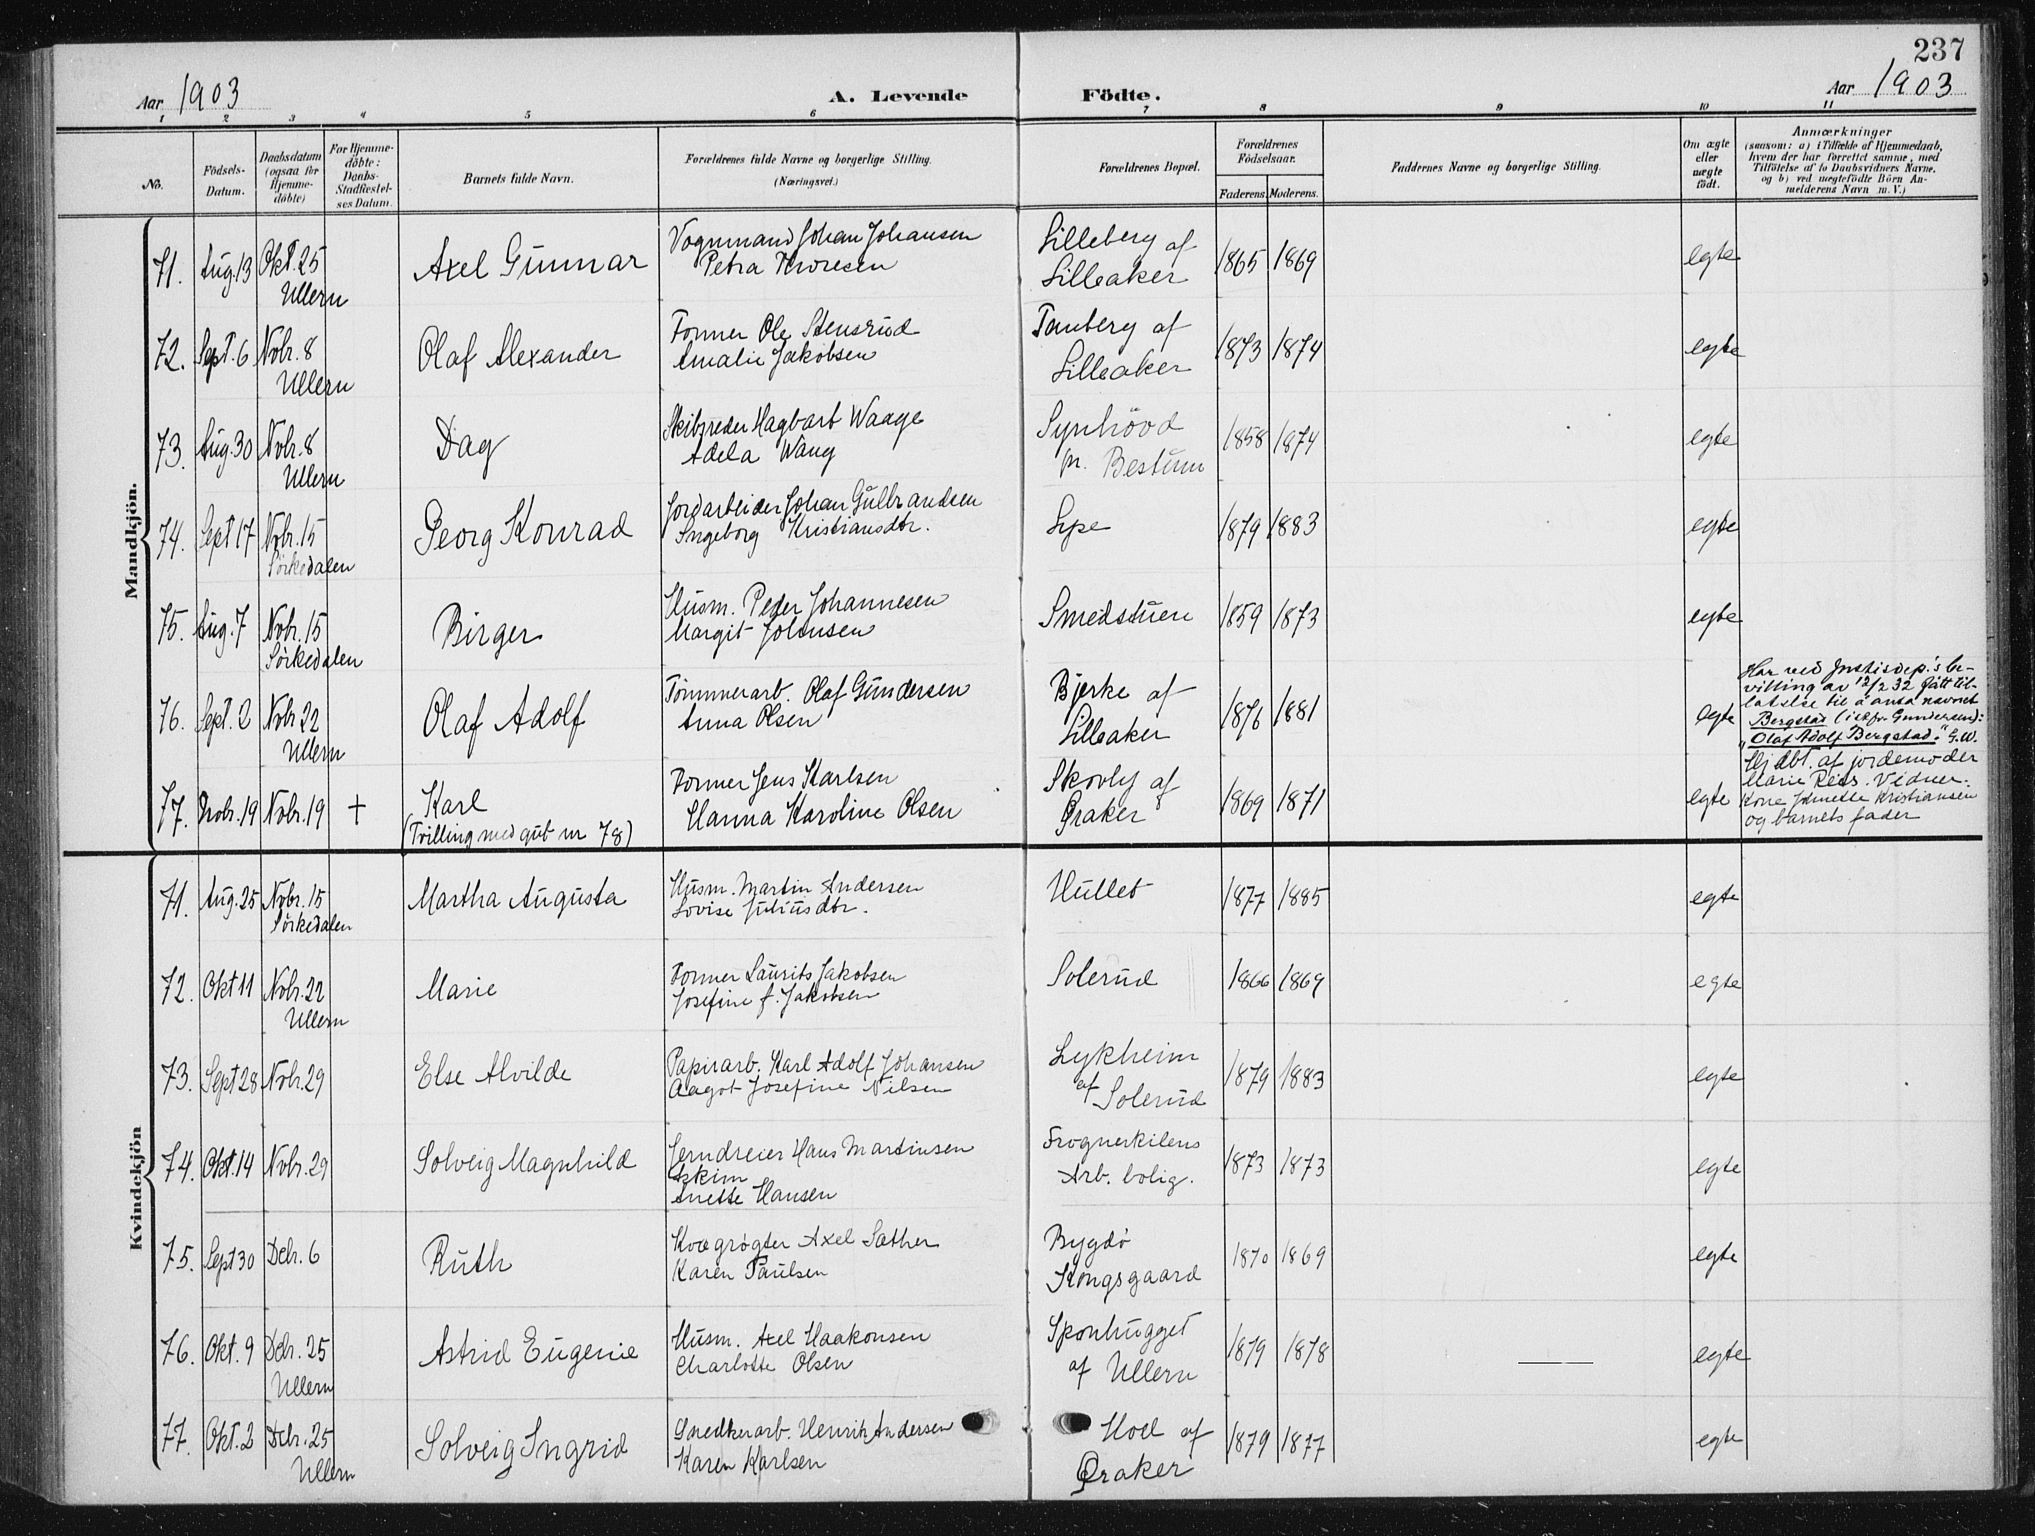 237
Aar 1903
A. Levende Födte.
Aar 1903
1 2 3 4 5 6 7 8 9 10 11
No.
Födsels-
Datum.
Daabsdatum
(ogsaa for
Hjemme-
döbte)
For Hjemme-
döbte:
Daabs-
Stadfæstel-
ses Datum.
Barnets fulde Navn.
Forældrenes fulde Navne og borgerlige Stilling.
(Næringsvei.)
Forældrenes Bopæl.
Forældrenes
Födselsaar.
Faderens. Moderens.
Faddernes Navne og borgerlige Stilling.
Om ægte
eller
uægte
födt.
Anmærkninger
(saasom: a) i Tilfælde af Hjemmedaab,
hvem der har forrettet samme, med
Tilföielse af to Daabsvidners Navne,
og b) ved uægtefödte Börn An-
melderens Navn m. V.)
Mandkjön.
71. Aug. 13 Okt. 25 Axel Gunnar Vognmand Johan Johansen Lilleberg af 1865 1869 egte
Ullern Petra Thoresen Lilleaker
72. Sept. 6 Nvbr. 8 Olaf Alexander Former Ole Stensrud Tanberg af 1873 1874 egte
Ullern Amalie Jakobsen Lilleaker
73. Aug. 30 Nvbr. 8 Dag Skibsreder Hagbart Waage Synhövd 1858 1874 egte
Ullern Adela Wang pr. Bestum
74. Sept 17 Nvbr. 15 Georg Konrad Jordarbeider Johan Gulbrandsen 1879 1883 egte
Sörkedalen Ingeborg Kristiansdtr.
75. Aug. 7 Nvbr. 15 Birger Husm. Peder Johannesen Smedstuen 1859 1873 egte
Sörkedalen Margit Johnsen
76. Sept. 2 Nvbr 22 Olaf Adolf Tömmerarb. Olaf Gundersen Bjerke af 1876 1881 egte
Ullern Anna Olsen Lilleaker
Har ved Justisdep.'s be-
villing av 12/2 32 fått til-
latelse til å anta navnet
Bergstad (istfr. Gundersen):
"Olaf Adolf Bergstad." G.W.
77. Nvbr. 19 Nvbr. 19 + Karl Former Jens Karlsen Skovly af 1869 1871 egte
(Tvilling med gut nr 78) Hanna Karoline Olsen Øraker
Hj dbt. af jordemoder
Marie Reis. Vidner:
Kone Jdmette Kristiansen
og barnets fader
Kvindekjön
71. Aug. 25 Nvbr. 15 Martha Augusta Husm. Martin Andersen Hullet 1877 1885 egte
Sörkedalen Lovise Juliusdtr.
72. Okt 11 Nvbr. 22 Marie Former Laurits Jakobsen Solerud 1866 1869 egte
Ullern Josefine f. Jakobsen
73. Sept 28 Nvbr. 29 Else Alvilde Papirarb. Karl Adolf Johansen Lykheim 1879 1883 egte
Aagot Josefine Nilsen af Solerud
74. Okt. 14 Nvbr. 29 Solveig Magnhild Jerndreier Hans Martinsen Frognerkilens 1873 1873 egte
Askim Arb. bolig.
Anette Hansen
75. Sept 30 Debr. 6 Ruth Kvægrøgter Axel Sæther Bygdö 1870 1869 egte
Karen Paulsen Kongsgaard
76. Okt. 9 Debr. 25 Astrid Eugenie Husm. Axel Haakonsen Sponhugget 1879 1878 egte
Ullern Charlotte Olsen af Ullern
77. Okt. 2 Debr. 25 Solveig Ingrid Snedkerarb. Henrik Andersen Hoel af 1879 1877 egte
Ullern Karen Karlsen Øraker